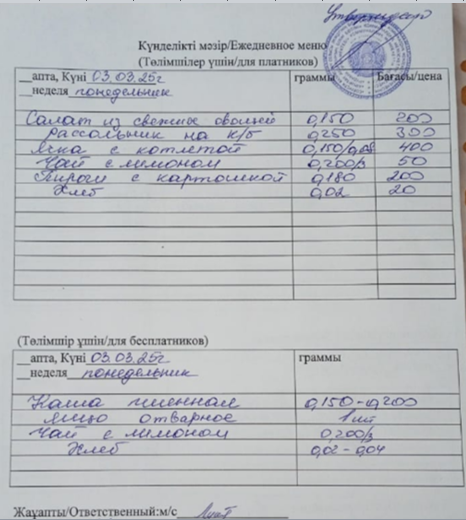 Утверждаю
Күнделікті мәзір/Ежедневное меню
(Төлімшілер үшін/для платников)
__апта, Күні 03.03.25г граммы Бағасы/цена
__неделя понедельник
Салат из свежих овощей 0,150 200
Рассольник на к/б 0,250 300
Яска с котлетой 0,150/0,05 400
Чай с лимоном 0,200/5 50
Пироги с картошкой 0,180 200
Хлеб 0,02 20
(Төлімшір үшін/для бесплатников)
__апта, Күні 03.03.25г граммы
__неделя понедельник
Каша пшенная 0,150-0,200
яйцо отварное 1 шт
Чай с лимоном 0,200/5
Хлеб 0,02-0,04
Жауапты/Ответственный:м/с